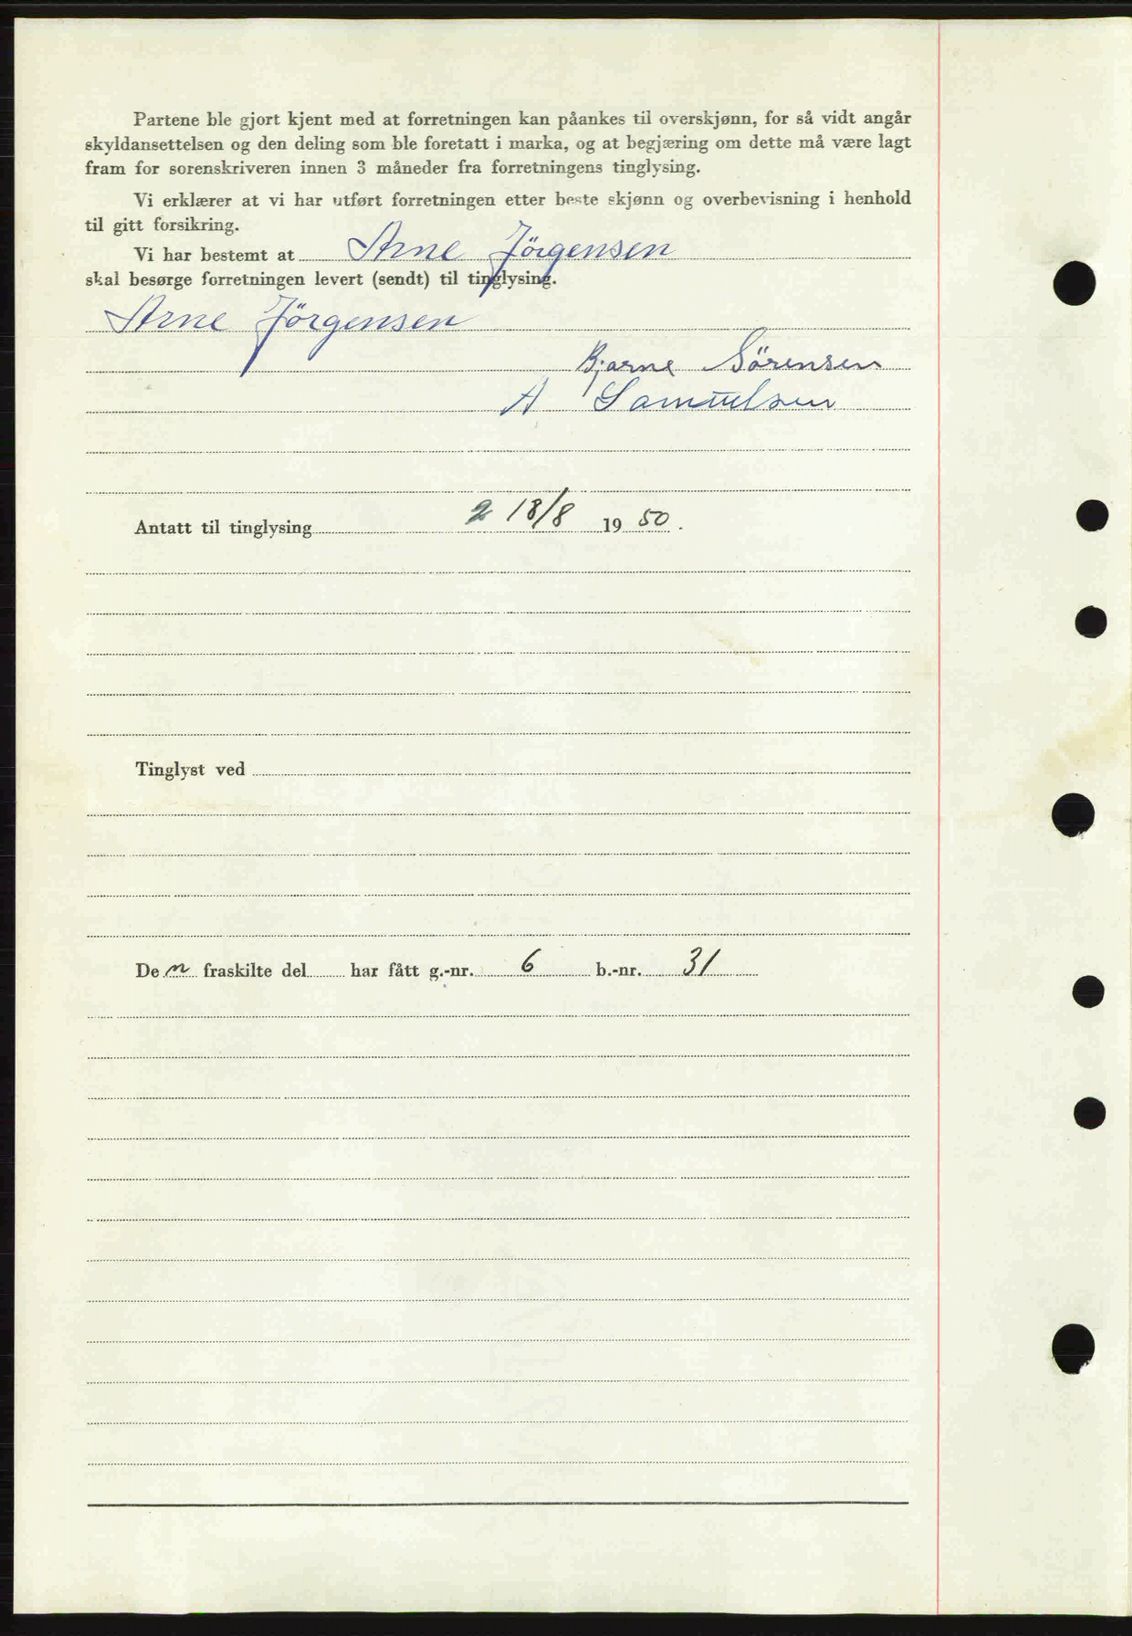 Partene ble gjort kjent med at forretningen kan påankes til overskjønn, for så vidt angår
skyldansettelsen og den deling som ble foretatt i marka, og at begjæring om dette må være lagt
fram for sorenskriveren innen 3 måneder fra forretningens tinglysing.
Vi erklærer at vi har utført forretningen etter beste skjønn og overbevisning i henhold
til gitt forsikring.
Vi har bestemt at Arne Jörgensen
skal besørge forretningen levert (sendt) til tinglysing.
Arne Jörgensen
Bjarne Sörensen
A Samuelsen
Antatt til tinglysing 18/8 19 50.
Tinglyst ved
De n fraskilte del har fått g.-nr. 6 b.-nr. 31